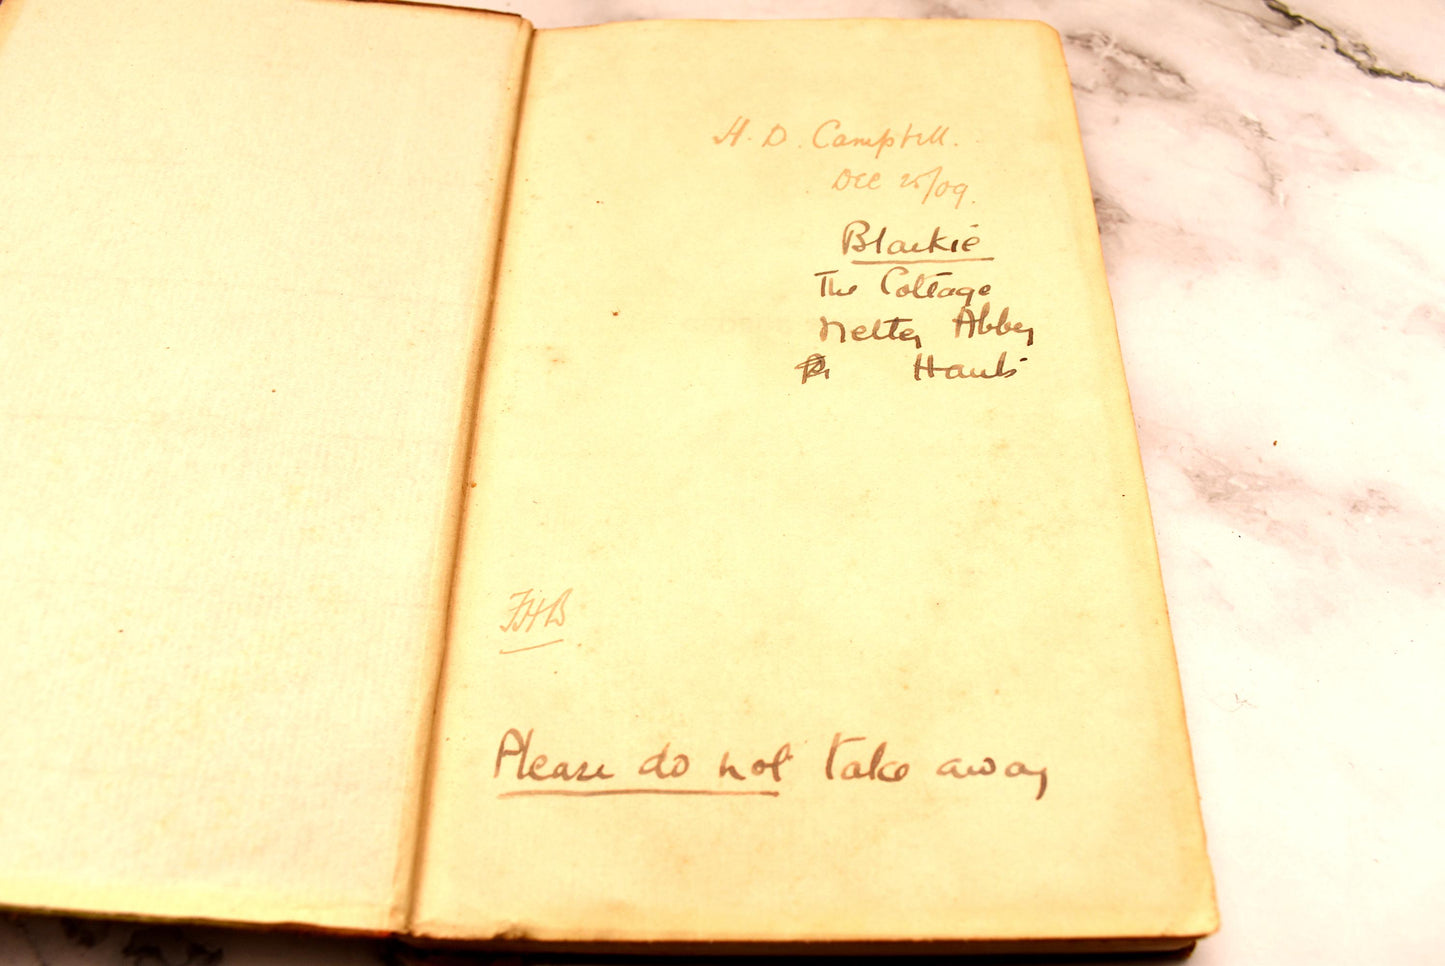 H. D. Campbell.
Dec 25/09.
Blackie
The Cottage
Netley Abbey
Hants
FHB
Please do not take away